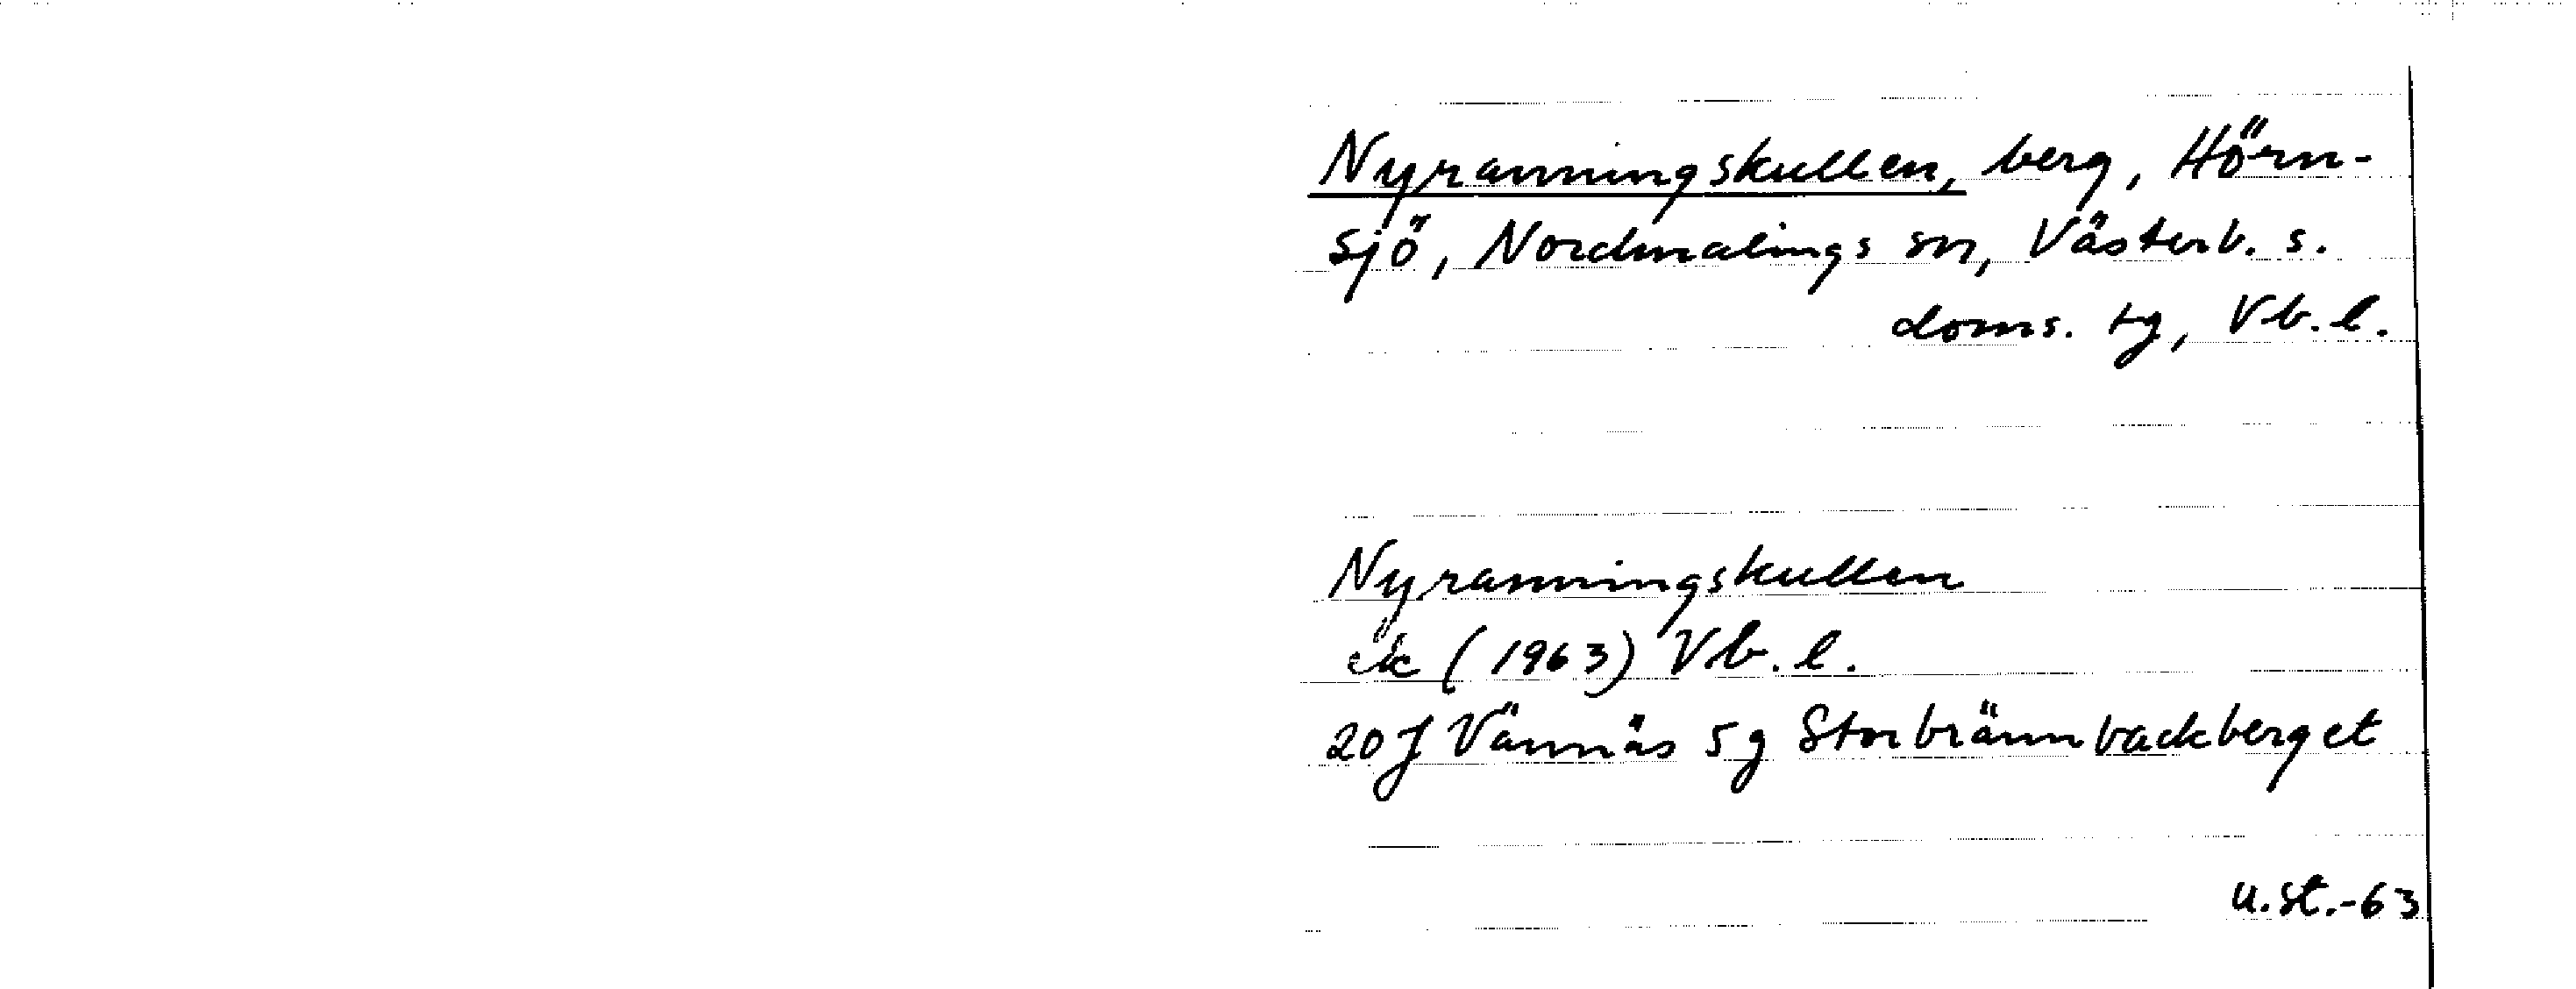 Nyranningskullen, berg, Hörn-
sjö, Nordmalings sn, Västerb. s.
doms. tg, Vb. l.
Nyranningskullen
ek (1963) Vb. l.
20 J Vännäs 5 g Storbrännbackberget
U. St.-63